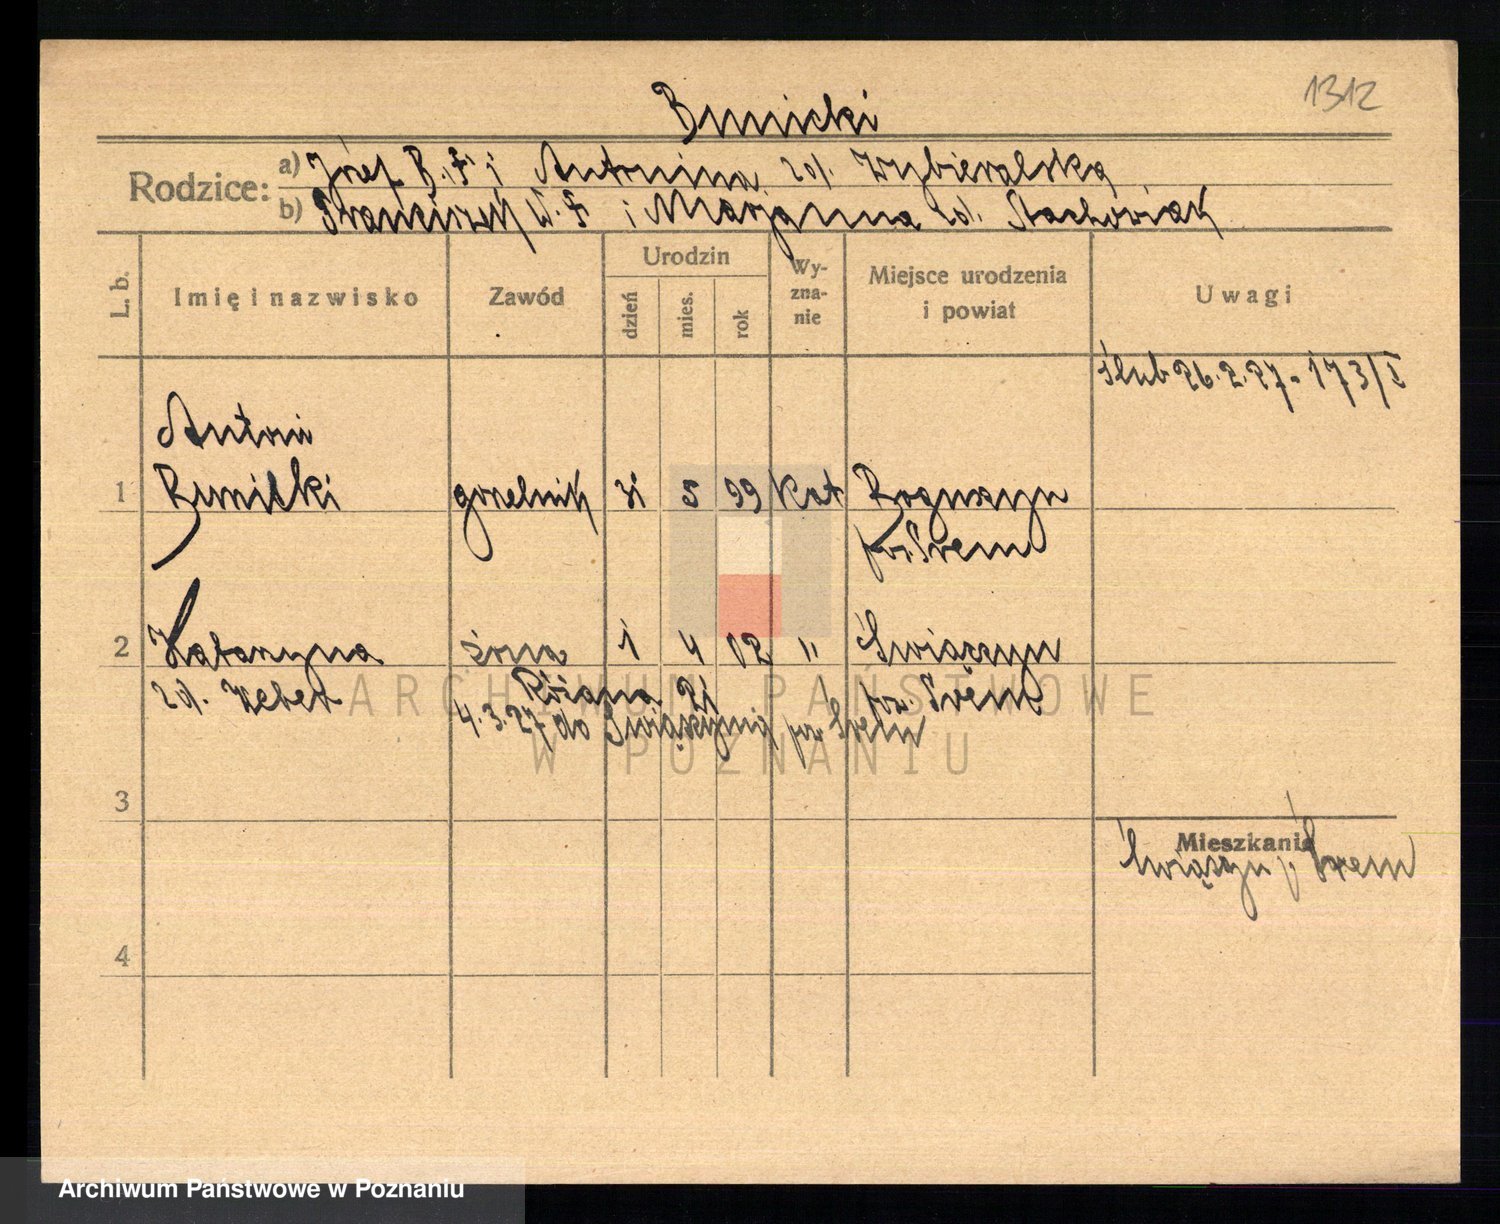 1312
Bunicki
Rodzice:
a) Józef B. i Antonina zd. Wybieralska
b) Franciszek W. i Marjanna zd. Stachowiak
L. b.
Imię i nazwisko
Zawód
Urodzin
dzień
mies.
rok
Wy-
zna-
nie
Miejsce urodzenia
i powiat
Uwagi
Ślub 26.2.27 - 173/I
Antoni
1 gorzelnik 31 5 99 Kat
pow. Śrem
2 Katarzyna żona 1 4 02 " Świączyn
zd. Weber pow. Śrem
Różana 21
4.3.27 do pow Śrem
ARCHIWUM PAŃSTWOWE
W POZNANIU
3
Mieszkanie
Świączyn p. Śrem
4
Archiwum Państwowe w Poznaniu